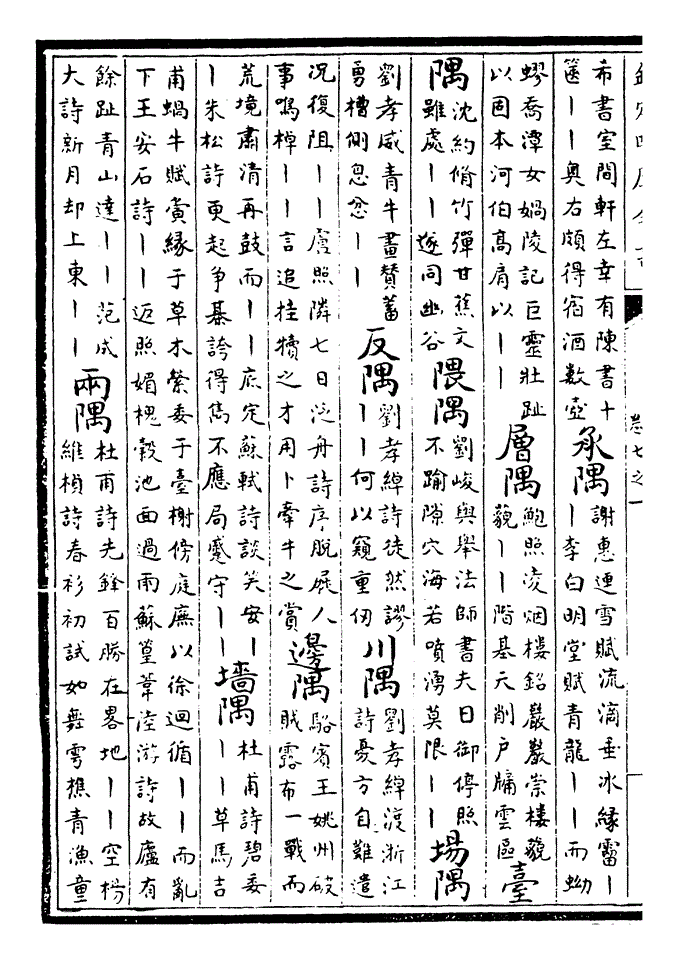 卷七之一
希書室間軒左幸有陳書十
篋丨丨奥右頗得宿酒數壺
承隅
謝惠連雪賦流滴垂冰緣霤丨
丨李白明堂賦青龍丨丨而蚴
蟉喬潭女媧陵記巨靈壯趾
以固本河伯髙肩以丨丨
層隅
鮑照凌烟樓銘巖巖崇樓藐
藐丨丨階基天削户牖雲區
臺
隅
沈約脩竹彈甘蕉文
雖處丨丨遂同幽谷
隈隅
劉峻與舉法師書夫日御停照
不踰隙穴海若噴湧莫限丨丨
場隅
劉孝威青牛畫賛蓄
勇槽側忽忿丨丨
反隅
劉孝綽詩徒然謬
丨丨何以窺重仞
川隅
劉孝綽渡浙江
詩憂方自難遣
况復阻丨丨盧照隣七日泛舟詩序脱屣人
事鳴棹丨丨言追挂犢之才用卜牽牛之賞
邊隅
駱賓王姚州破
賊露布一戰而
荒境肅清再鼓而丨丨底定蘇軾詩談笑安丨
丨朱松詩更起爭棊誇得雋不應局蹙守丨丨
墻隅
杜甫詩碧委
丨丨草馬吉
甫蝸牛賦賞緣于草木縈委于臺榭傍庭廡以徐迴循丨丨而亂
下王安石詩丨丨返照媚槐榖池面過雨蘇篁葦陸游詩故廬有
餘趾青山達丨丨范成
大詩新月却上東丨丨
兩隅
杜甫詩先鋒百勝在畧地丨丨空楊
維楨詩春衫初試如舞雩樵青漁童